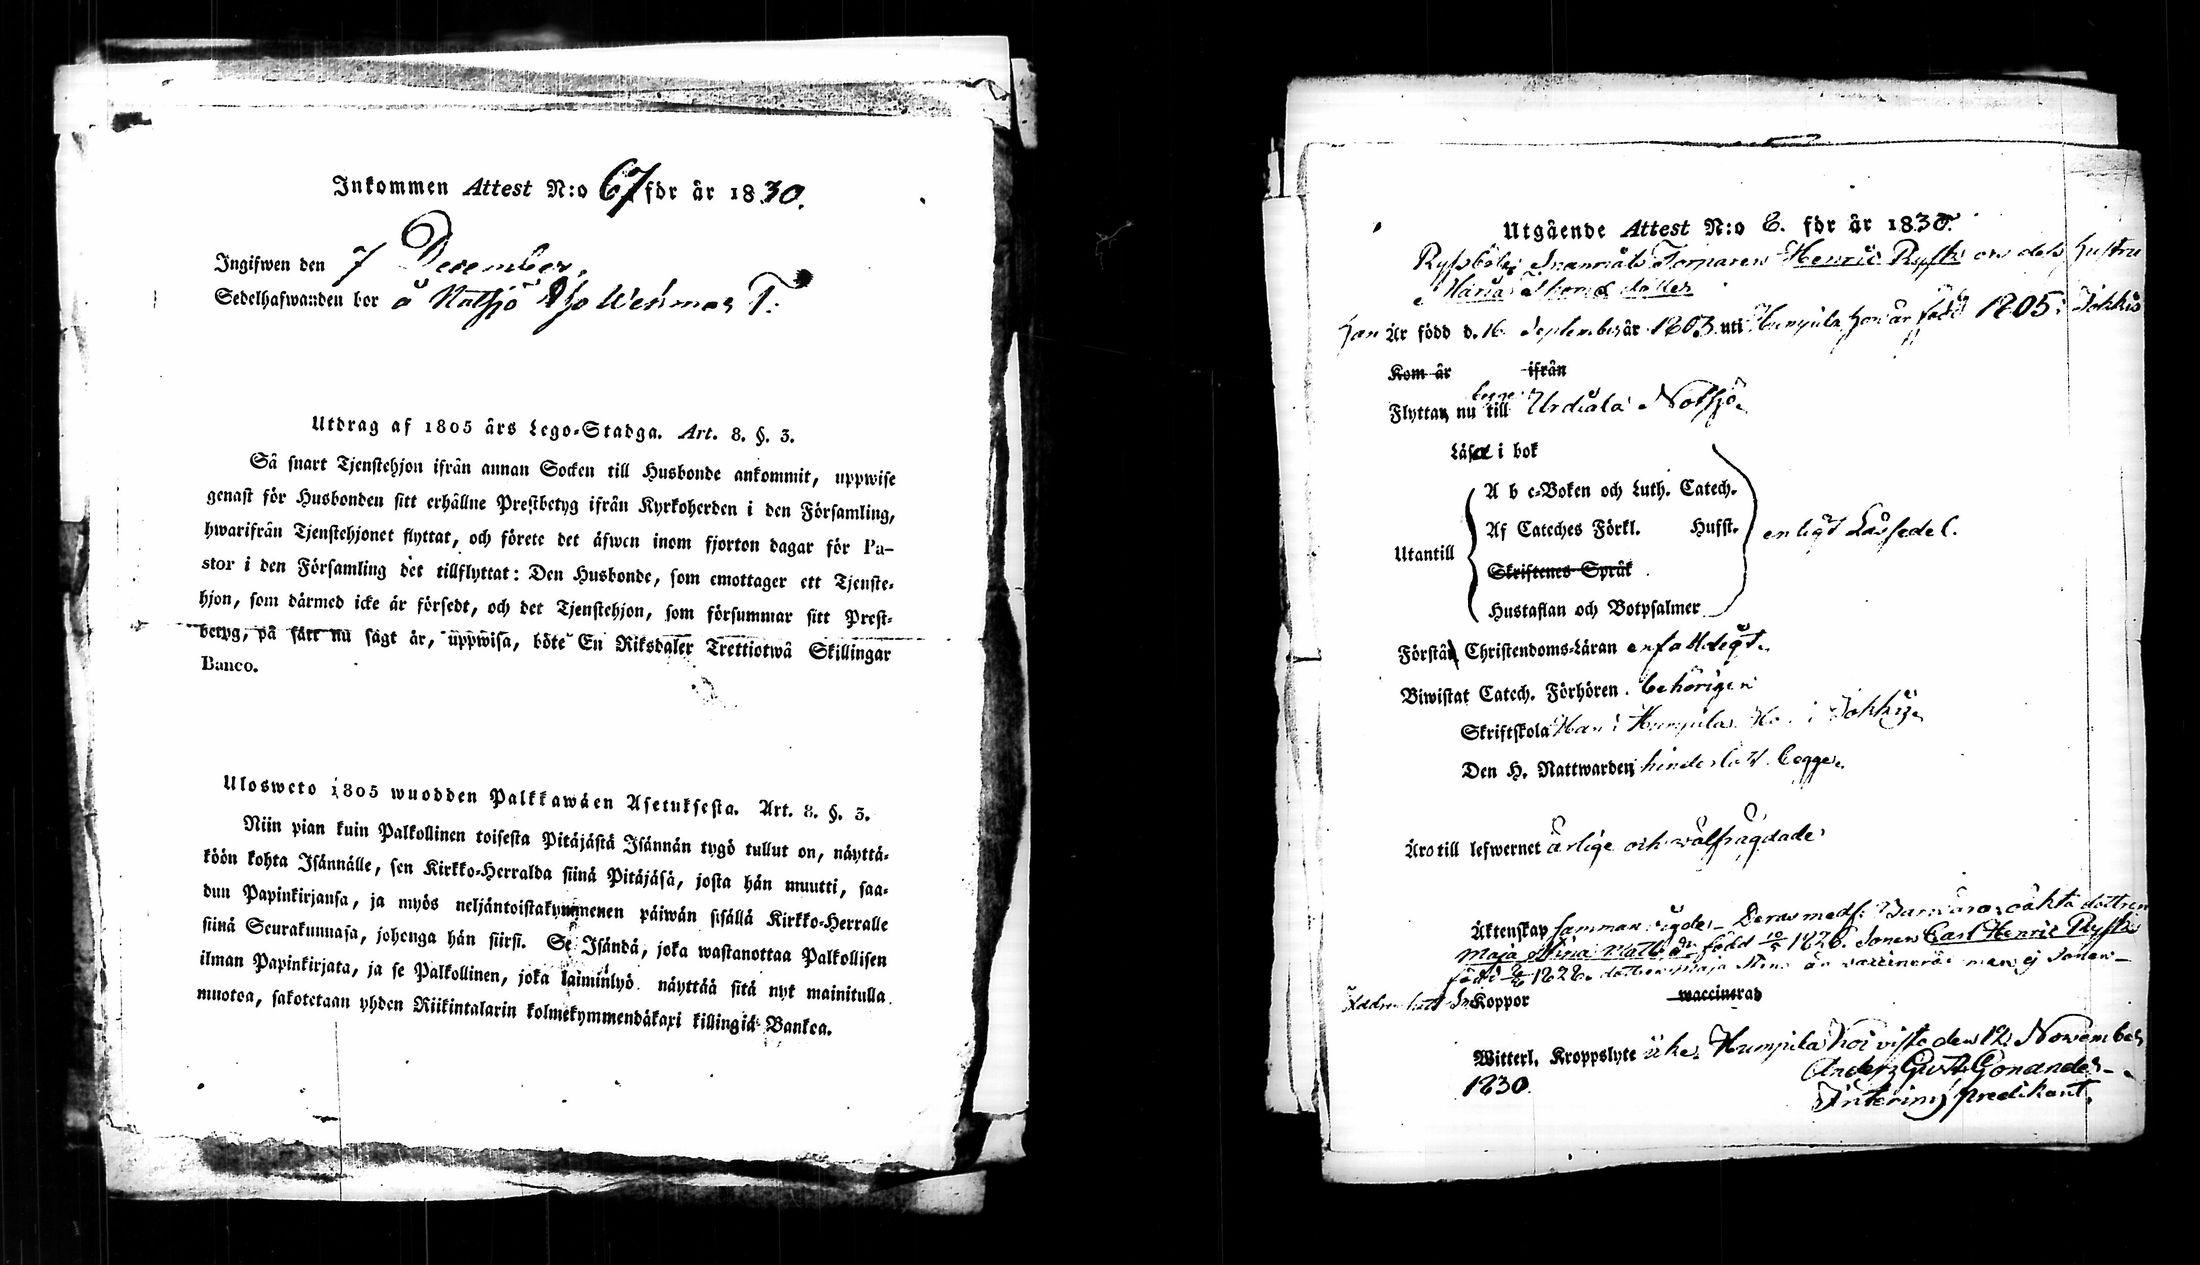 Inkommen Attest N:o 67 för år 1830.
Ingifwen den 7 December.
Sedelhafwanden bor å Notsjö Wehmas T.
Utdrag af 1805 års Lego-Stadga. Art. 8. §. 3.
Så snart Tjenstehjon ifrån annan Socken till Husbonde ankommit, uppwise
genast för Husbonden sitt erhållne Prestbetyg ifrån Kyrkoherden i den Församling,
hwarifrån Tjenstehjonet flyttat, och förete det äfwen inom fjorton dagar för Pa-
stor i den Församling det tillflyttat: Den Husbonde, som emottager ett Tjenste-
hjon, som därmed icke är försedt, och det Tjenstehjon, som försummar sitt Prest-
betyg, på sätt nu sagt är, uppwisa, böte En Riksdaler Trettiotwå Skillingar
Banco.
Ulosweto 1805 wuodden Palkkawäen Asetuksesta. Art. 8. §. 3.
Niin pian kuin Palkollinen toisesta Pitäjästä Isännän tygö tullut on, näyttä-
köön kohta Isännälle, sen Kirkko-Herralda siinä Pitäjäsä, josta hän muutti, saa-
dun Papinkirjansa, ja myös neljäntoistakymmenen päiwän sisällä Kirkko-Herralle
siinä Seurakunnasa, johonga hän siirsi. Se Isändä, joka wastanottaa Palkollisen
ilman Papinkirjata, ja se Palkollinen, joka laiminlyö näyttää sitä nyt mainitulla
muotoa, sakotetaan yhden Riikintalarin kolmekymmendäkaxi killingiä Bankoa.
Utgående Attest N:o 8. för år 1830.
Henric Rysth och dess hustru
Maria Thomædotter
Han Är född d. 16 September år 1803 uti Humpila hon är född 1805 i Jokkis
Kom år ifrån
Flyttar nu till Urdiala Notsjö.
Läser i bok
A b c-Boken och Luth. Catech.
Af Cateches Förkl. Husst. enligt Läsesedel.
Utantill
Skriftenes Språk
Hustaflan och Botpsalmer
Förstår Christendoms-Läran enfaldigt.
Biwistat Catech. Förhören behörigen
Skriftskola Han i Humpila Hon i Jokkis.
Den H. Nattwarden hindelöst begge.
Äro till lefwernet ärlige och wälfrägdade
Äktenskap sammanwigde. Deras medf. Barn äro: äkta dottren
Maja Stina född 10/5 1826. Sonen Carl Henric Rysth
född 1828. dottren Maja Stina är vaccinerad men ej Sonen
Koppor waccinerad
Witterl. Kroppslyte icke. Humpila den 12 November
1830.
Anders Gust. Gonander
Interims predikant.